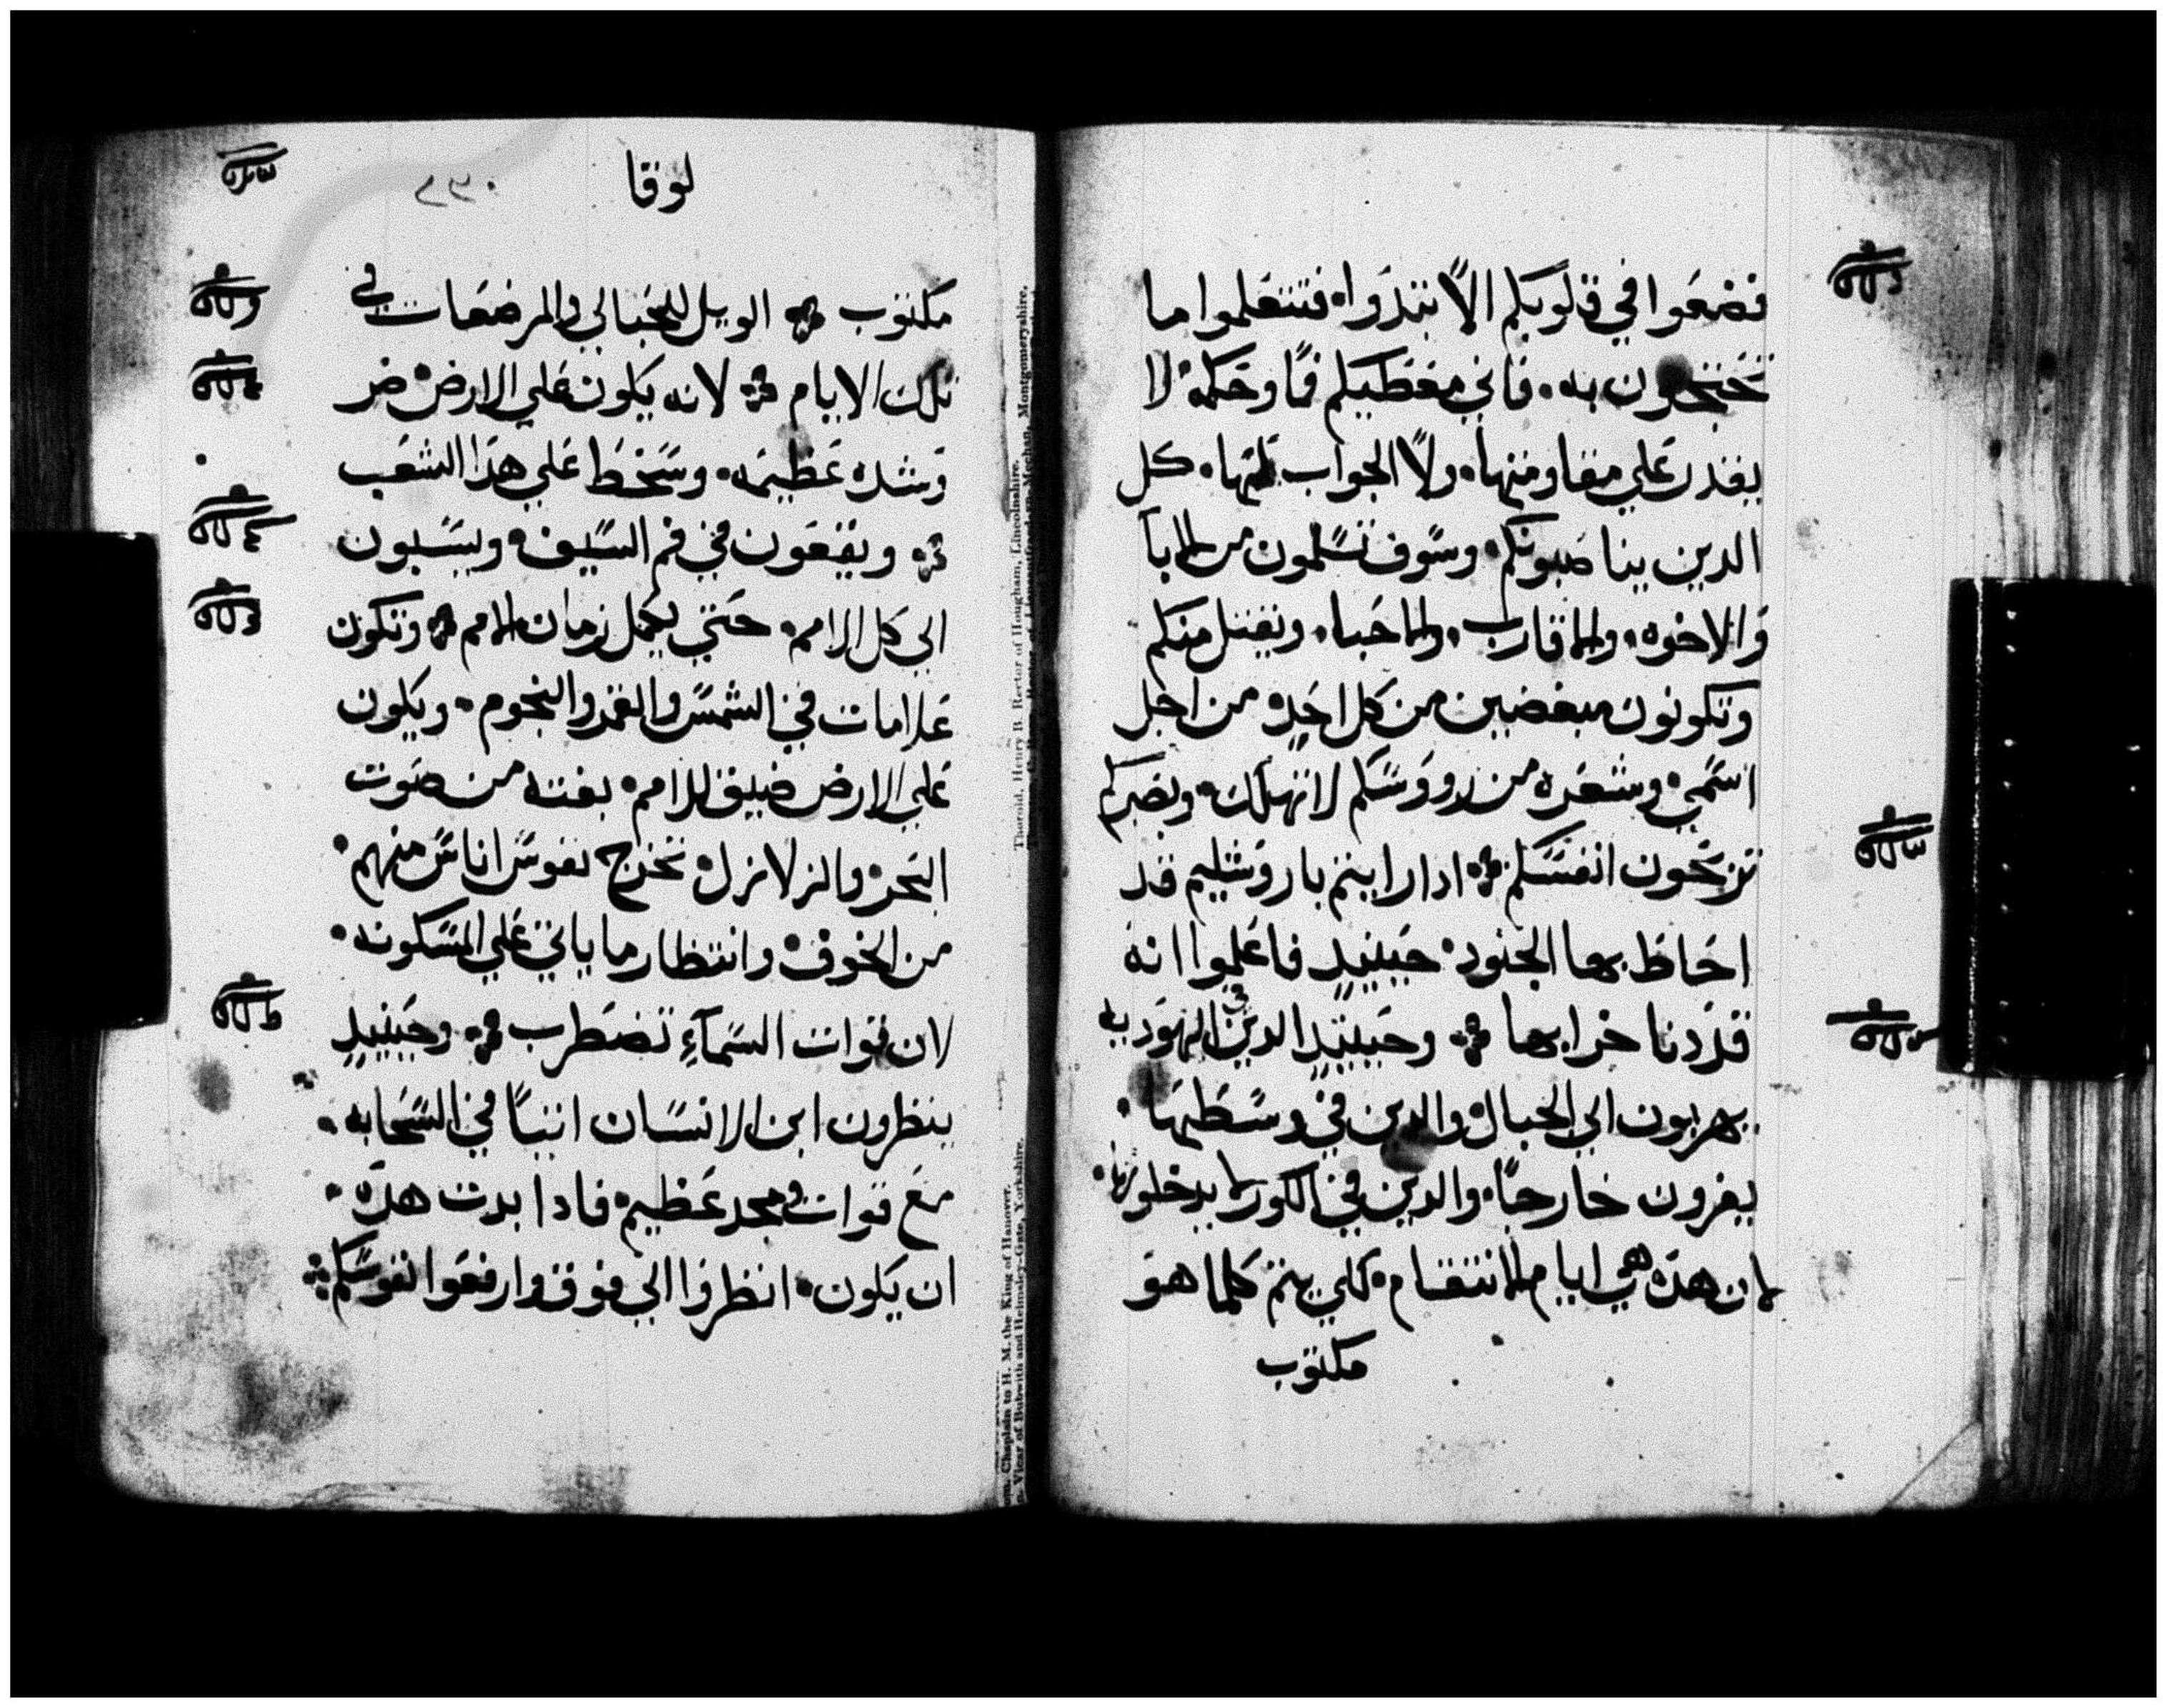 فضعوا في قلوبكم الا تبتدوا فتتعلموا ما
تحتجون به. فاني معطيكم فما وحكمه لا
يقدر علي مقاومتها. ولا الجواب عنها. كل
الدين يناصبونكم. وسوف تسلمون من الابا
والاخوه. والاقارب. والاحبا. ويقتل منكم
وتكونون مبغضين من كل احد من اجل
اسمي. وشعره من رووسكم لا تهلك. وبصبركم
تربحون انفسكم ܀ ادا رايتم باروشليم قد
احاط بها الجنود. حينيد فاعلموا انه
قد دنا خرابها ܀ وحينيد الدين في اليهوديه
يهربون الي الجبال والدين في وسطها.
يفرون خارجا. والدين في الكور لا يدخلونها.
لان هده هي ايام الانتقام. لكي يتم كلما هو
مكتوب
لوقا
٢٣٠
مكتوب ܀ الويل للحبالي والمرضعات في
تلك الايام ܀ لانه يكون علي الارض ضر
وشده عظيمه. وسخط علي هدا الشعب
܀ ويقعون في فم السيف. ويسبون
الي كل الامم. حتي يكمل زمان الامم ܀ وتكون
علامات في الشمس والقمر والنجوم. ويكون
علي الارض ضيق للامم. بغته من صوت
البحر والزلازل. تخرج نفوس اناس منهم.
من الخوف. وانتظار ما ياتي علي المسكونه.
لان قوات السمآء تضطرب ܀ وحينيد
ينظرون ابن الانسان اتيا في السحابه.
مع قوات ومجد عظيم. فادا بدت هده.
ان يكون. انظروا الي فوق وارفعوا نفوسكم܀
Thorold, Henry B. Rector of Hougham, Lincolnshire.
Chaplain to H. M. the King of Hanover.
Vicar of Bubwith and Helmsley-Gate, Yorkshire.